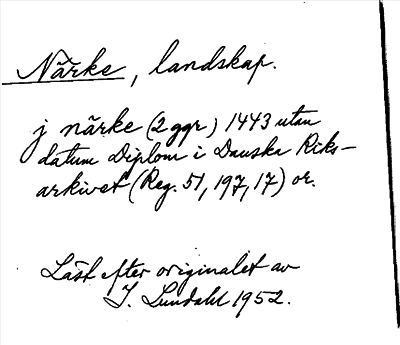 Närke, landskap.
j närke (2 ggr) 1443 utan
datum Diplom i Danska Riks-
arkivet (Reg. 51, 197, 17) or.
Läst efter originalet av
I. Lundahl 1952.